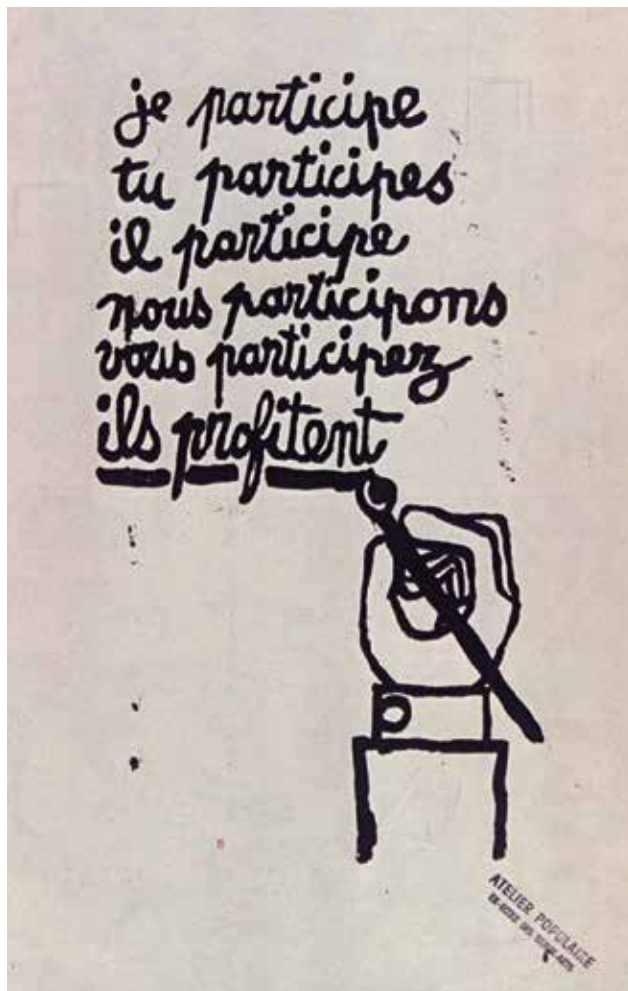 je participe
tu participes
il participe
nous participons
vous participez
ils profitent
ATELIER POPULAIRE
EX-ECOLE DES BEAUX ARTS